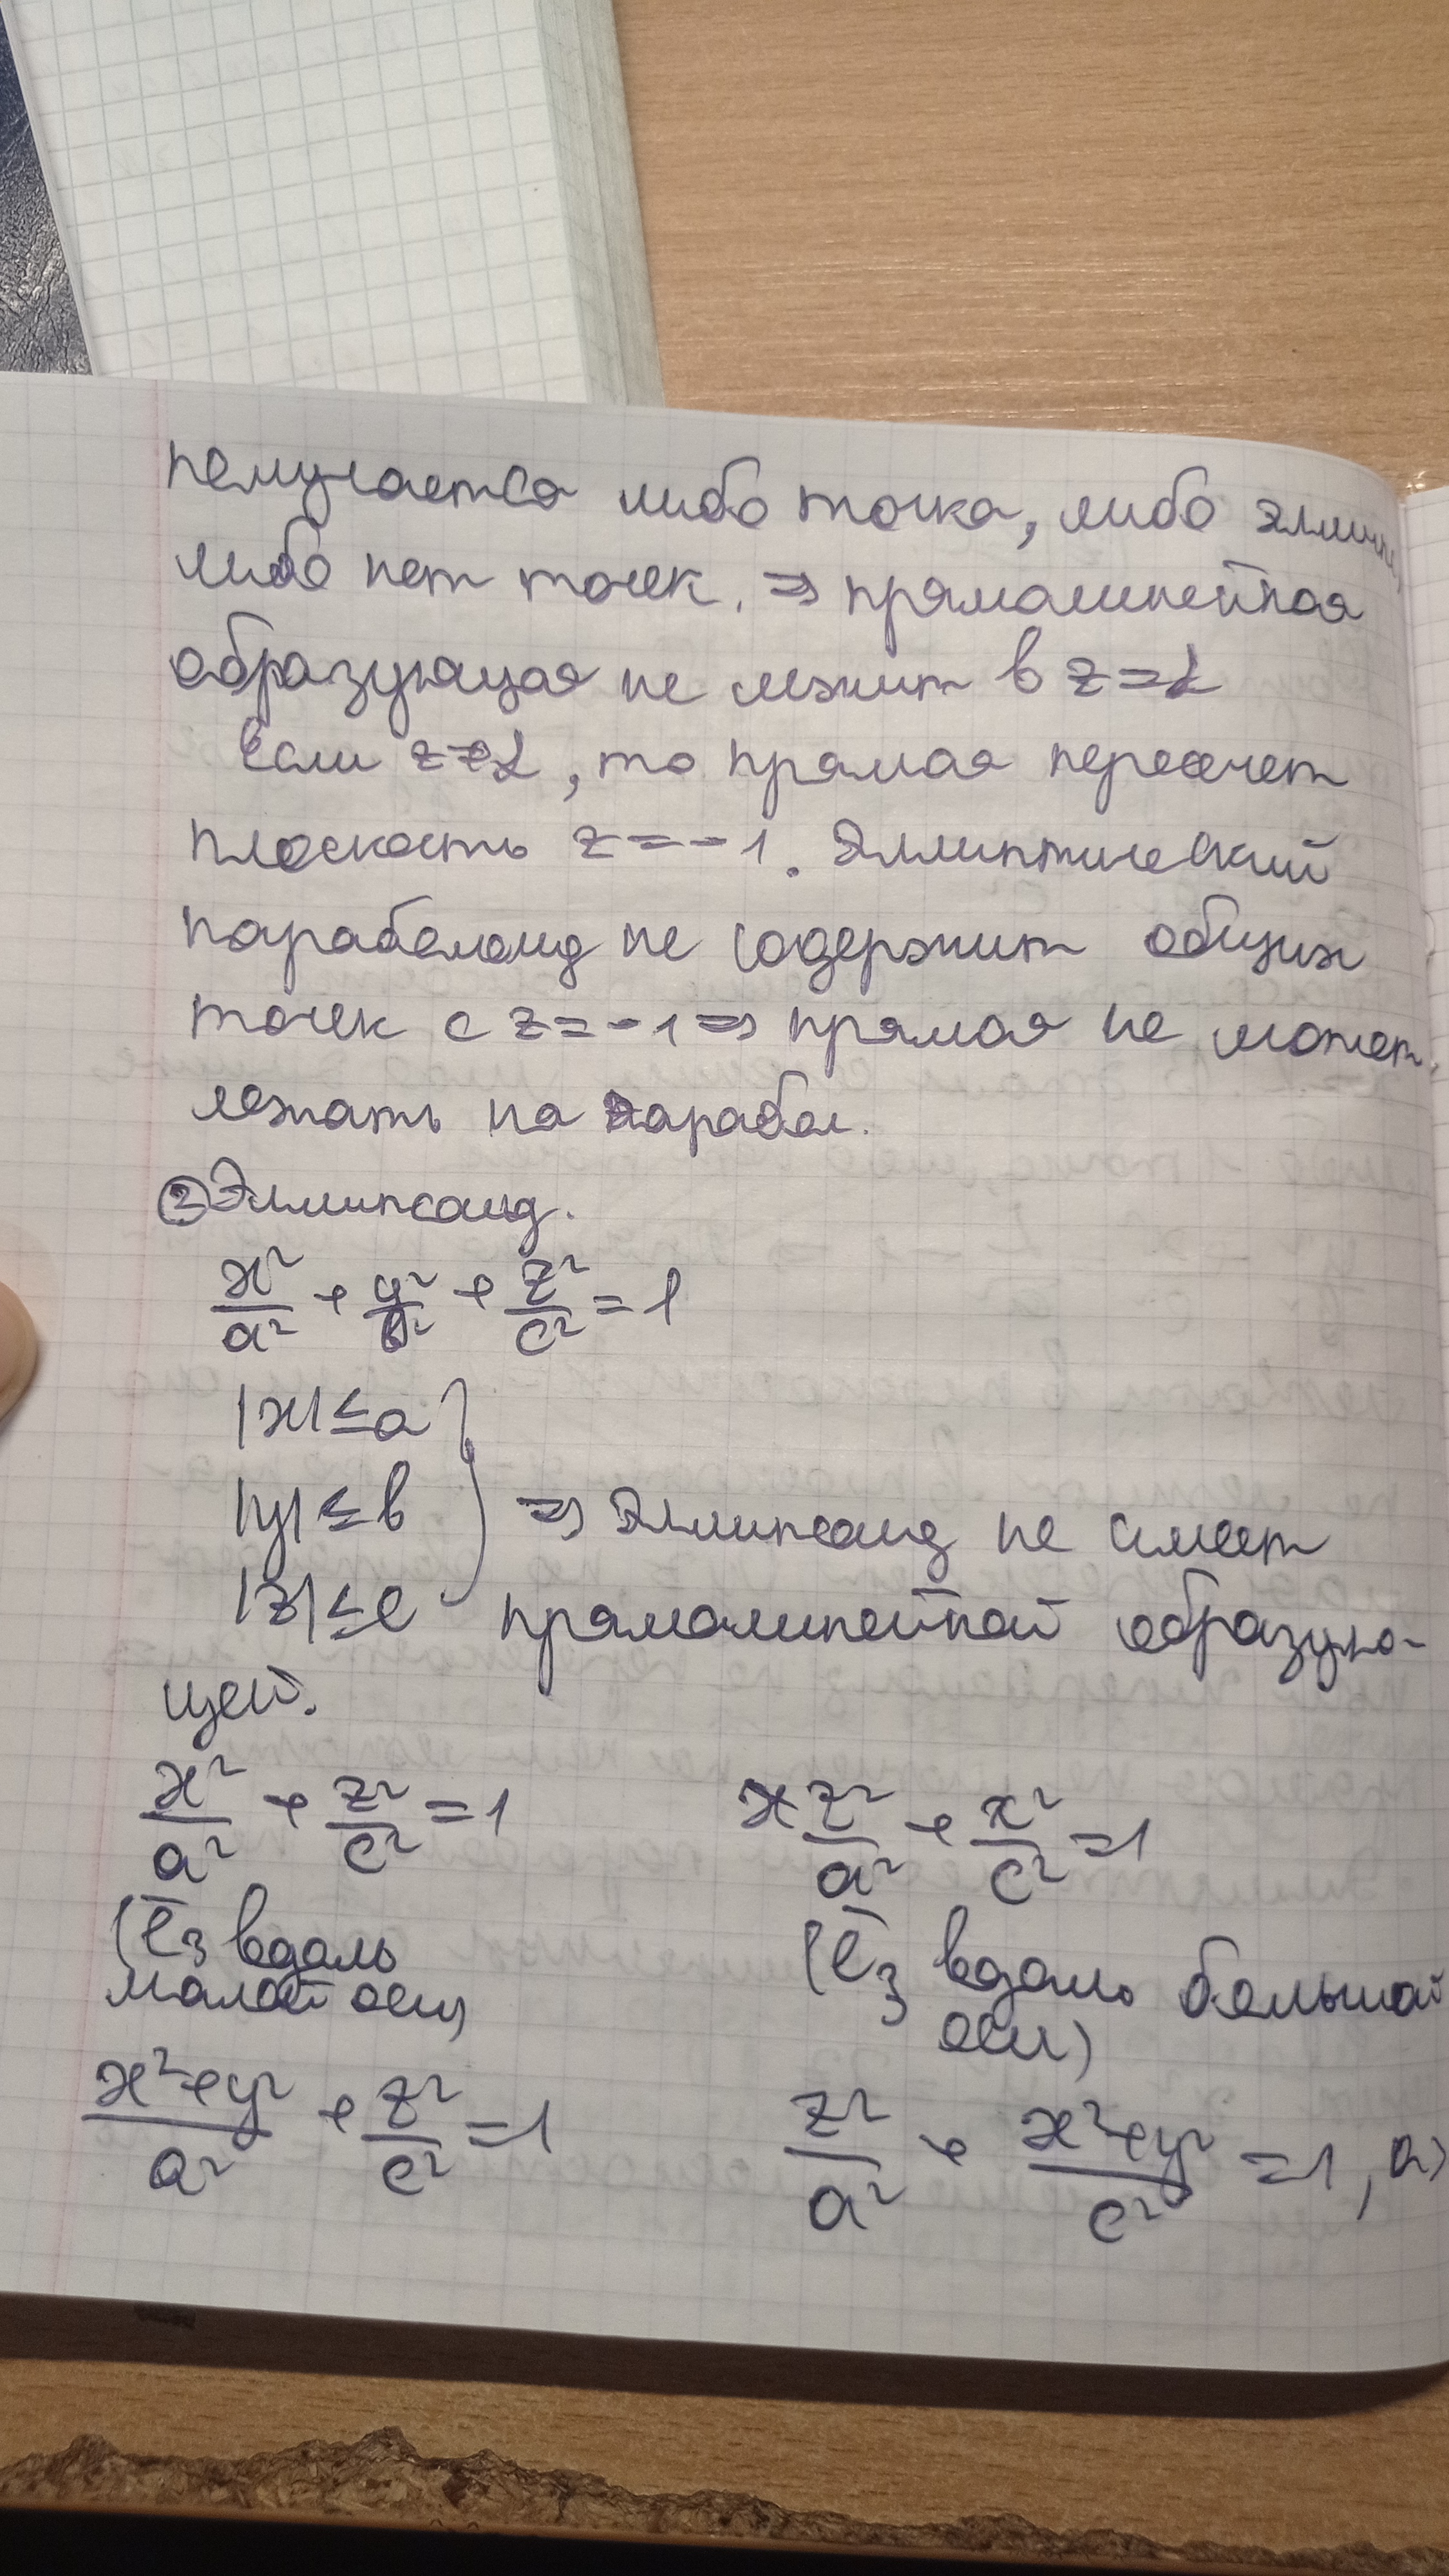 получается либо точка, либо эллипс,
либо нет точек. ⇒ прямолинейная
образующая не лежит в z=α
если z≠α, то прямая пересечет
плоскость z=-1. Эллиптический
параболоид не содержит общих
точек с z=-1 ⇒ прямая не может
лежать на парабол.
② Эллипсоид.
x²/a² + y²/b² + z²/c² = 1
|x| ≤ a
|y| ≤ b ⇒ Эллипсоид не имеет
|z| ≤ c прямолинейной образую-
щей.
x²/a² + z²/c² = 1 z²/a² + x²/c² = 1
(ē₃ вдоль (ē₃ вдоль большой
малой оси) оси)
(x²+y²)/a² + z²/c² = 1 z²/a² + (x²+y²)/c² = 1, a>